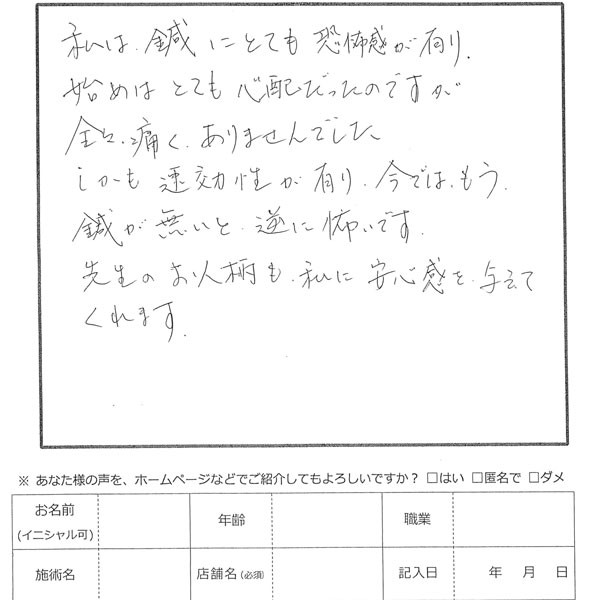 私は、鍼にとても恐怖感が有り、
始めはとても心配だったのですが
全々、痛く、ありませんでした、
しかも速効性が有り、今では、もう、
鍼が無いと、逆に怖いです。
先生のお人柄も、私に安心感を、与えて
くれます。
※ あなた様の声を、ホームページなどでご紹介してもよろしいですか？ □はい □匿名で □ダメ
お名前 年齢 職業
(イニシャル可)
施術名 店舗名（必須） 記入日 年 月 日